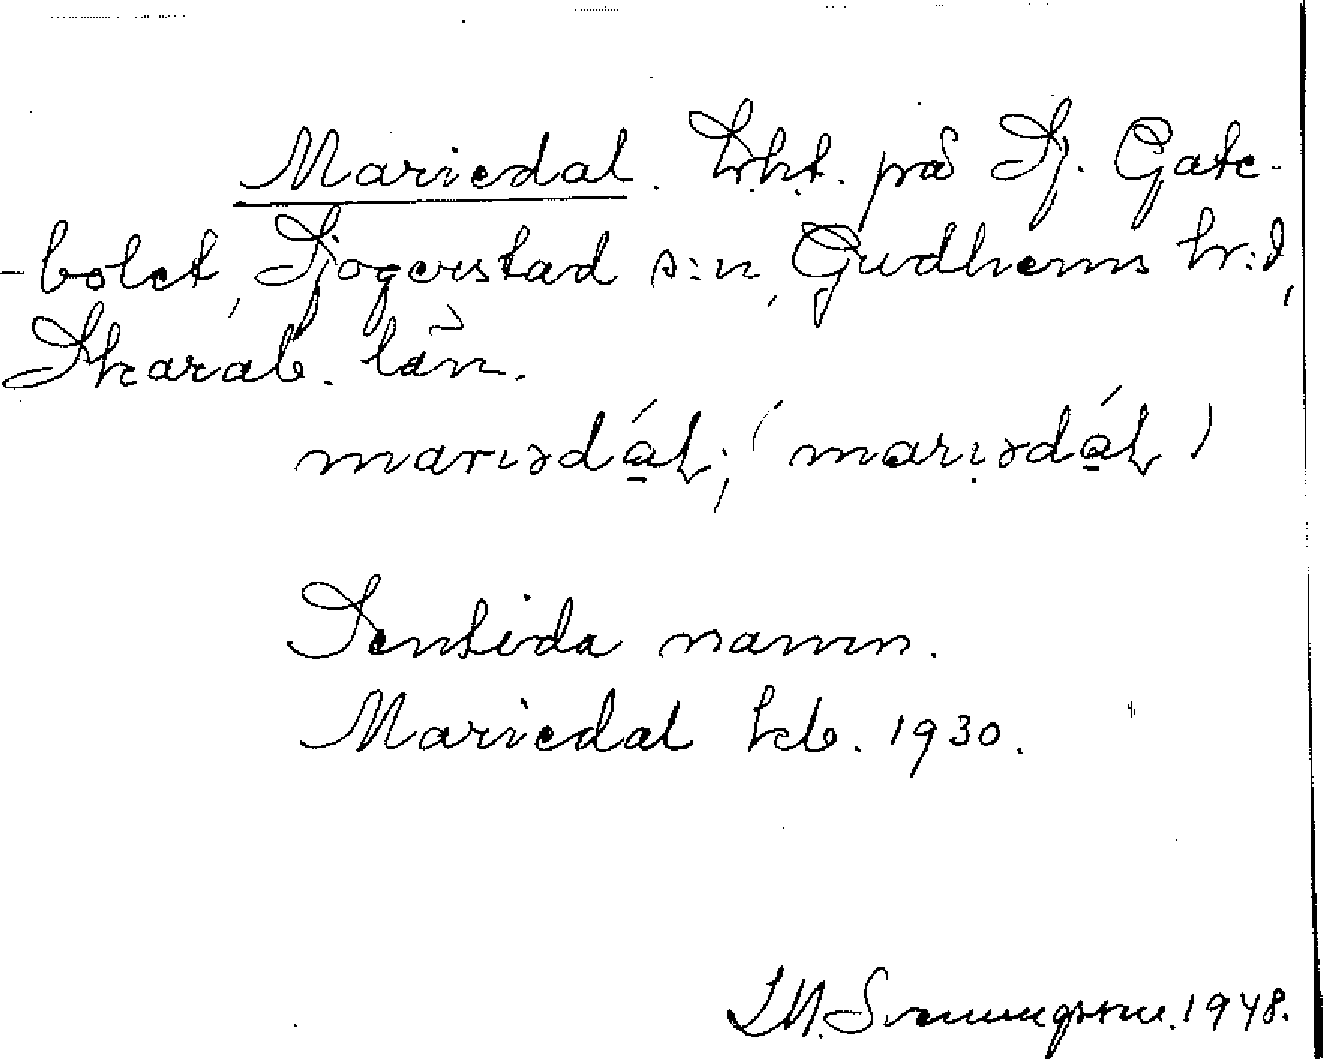 Mariedal. Lht. på Sj. Gate-
-bolet, Sjogerstad s:n, Gudhems hr:d,
Skarab. län.
marıədát; (marıədát)
Sentida namn.
Mariedal kb. 1930.
Svenungsson. 1948.